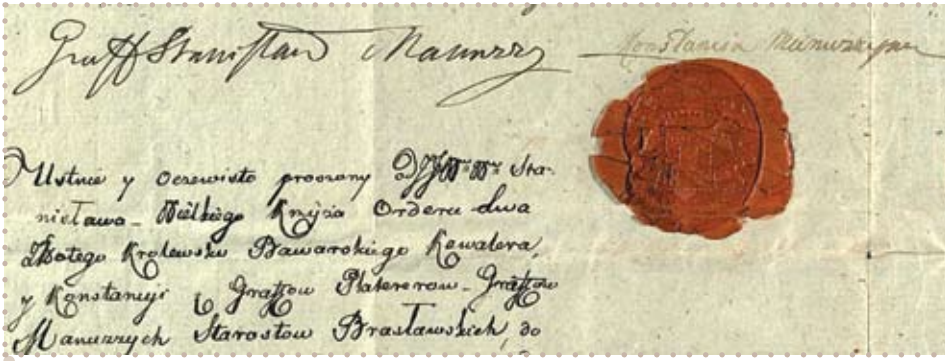 Graff Stanisław Manuzzy
Konstancia Manuzzyna
Ustnie y oczewisto proszony Od JJWW Sta-
nisława Wielkiego Krzyża Orderu Lwa
Złotego Krolewsko Bawarskiego Kawalera,
y Konstancyi z Graffow Platerow Graffow
Manuzzych Starostow Brasławskich, do